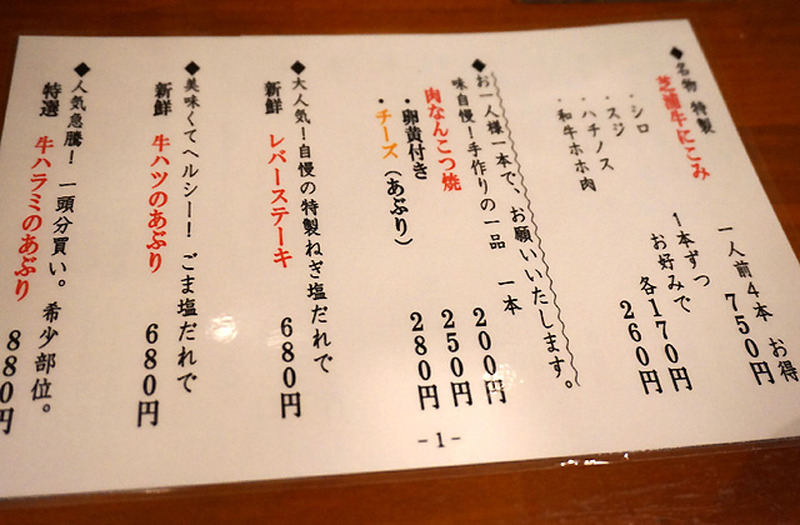 ◆名物 特製
芝浦牛にこみ
一人前4本 お得
750円
・シロ
・スジ
・ハチノス
・和牛ホホ肉
1本ずつ
お好みで
各170円
260円
◆お一人様一本で、お願いいたします。
味自慢！手作りの一品 一本
肉なんこつ焼 200円
・卵黄付き 250円
・チーズ（あぶり） 280円
◆大人気！自慢の特製ねぎ塩だれで
新鮮 レバーステーキ 680円
◆美味くてヘルシー！ごま塩だれで
新鮮 牛ハツのあぶり 680円
◆人気急騰！一頭分買い。希少部位。
特選 牛ハラミのあぶり 880円
-1-